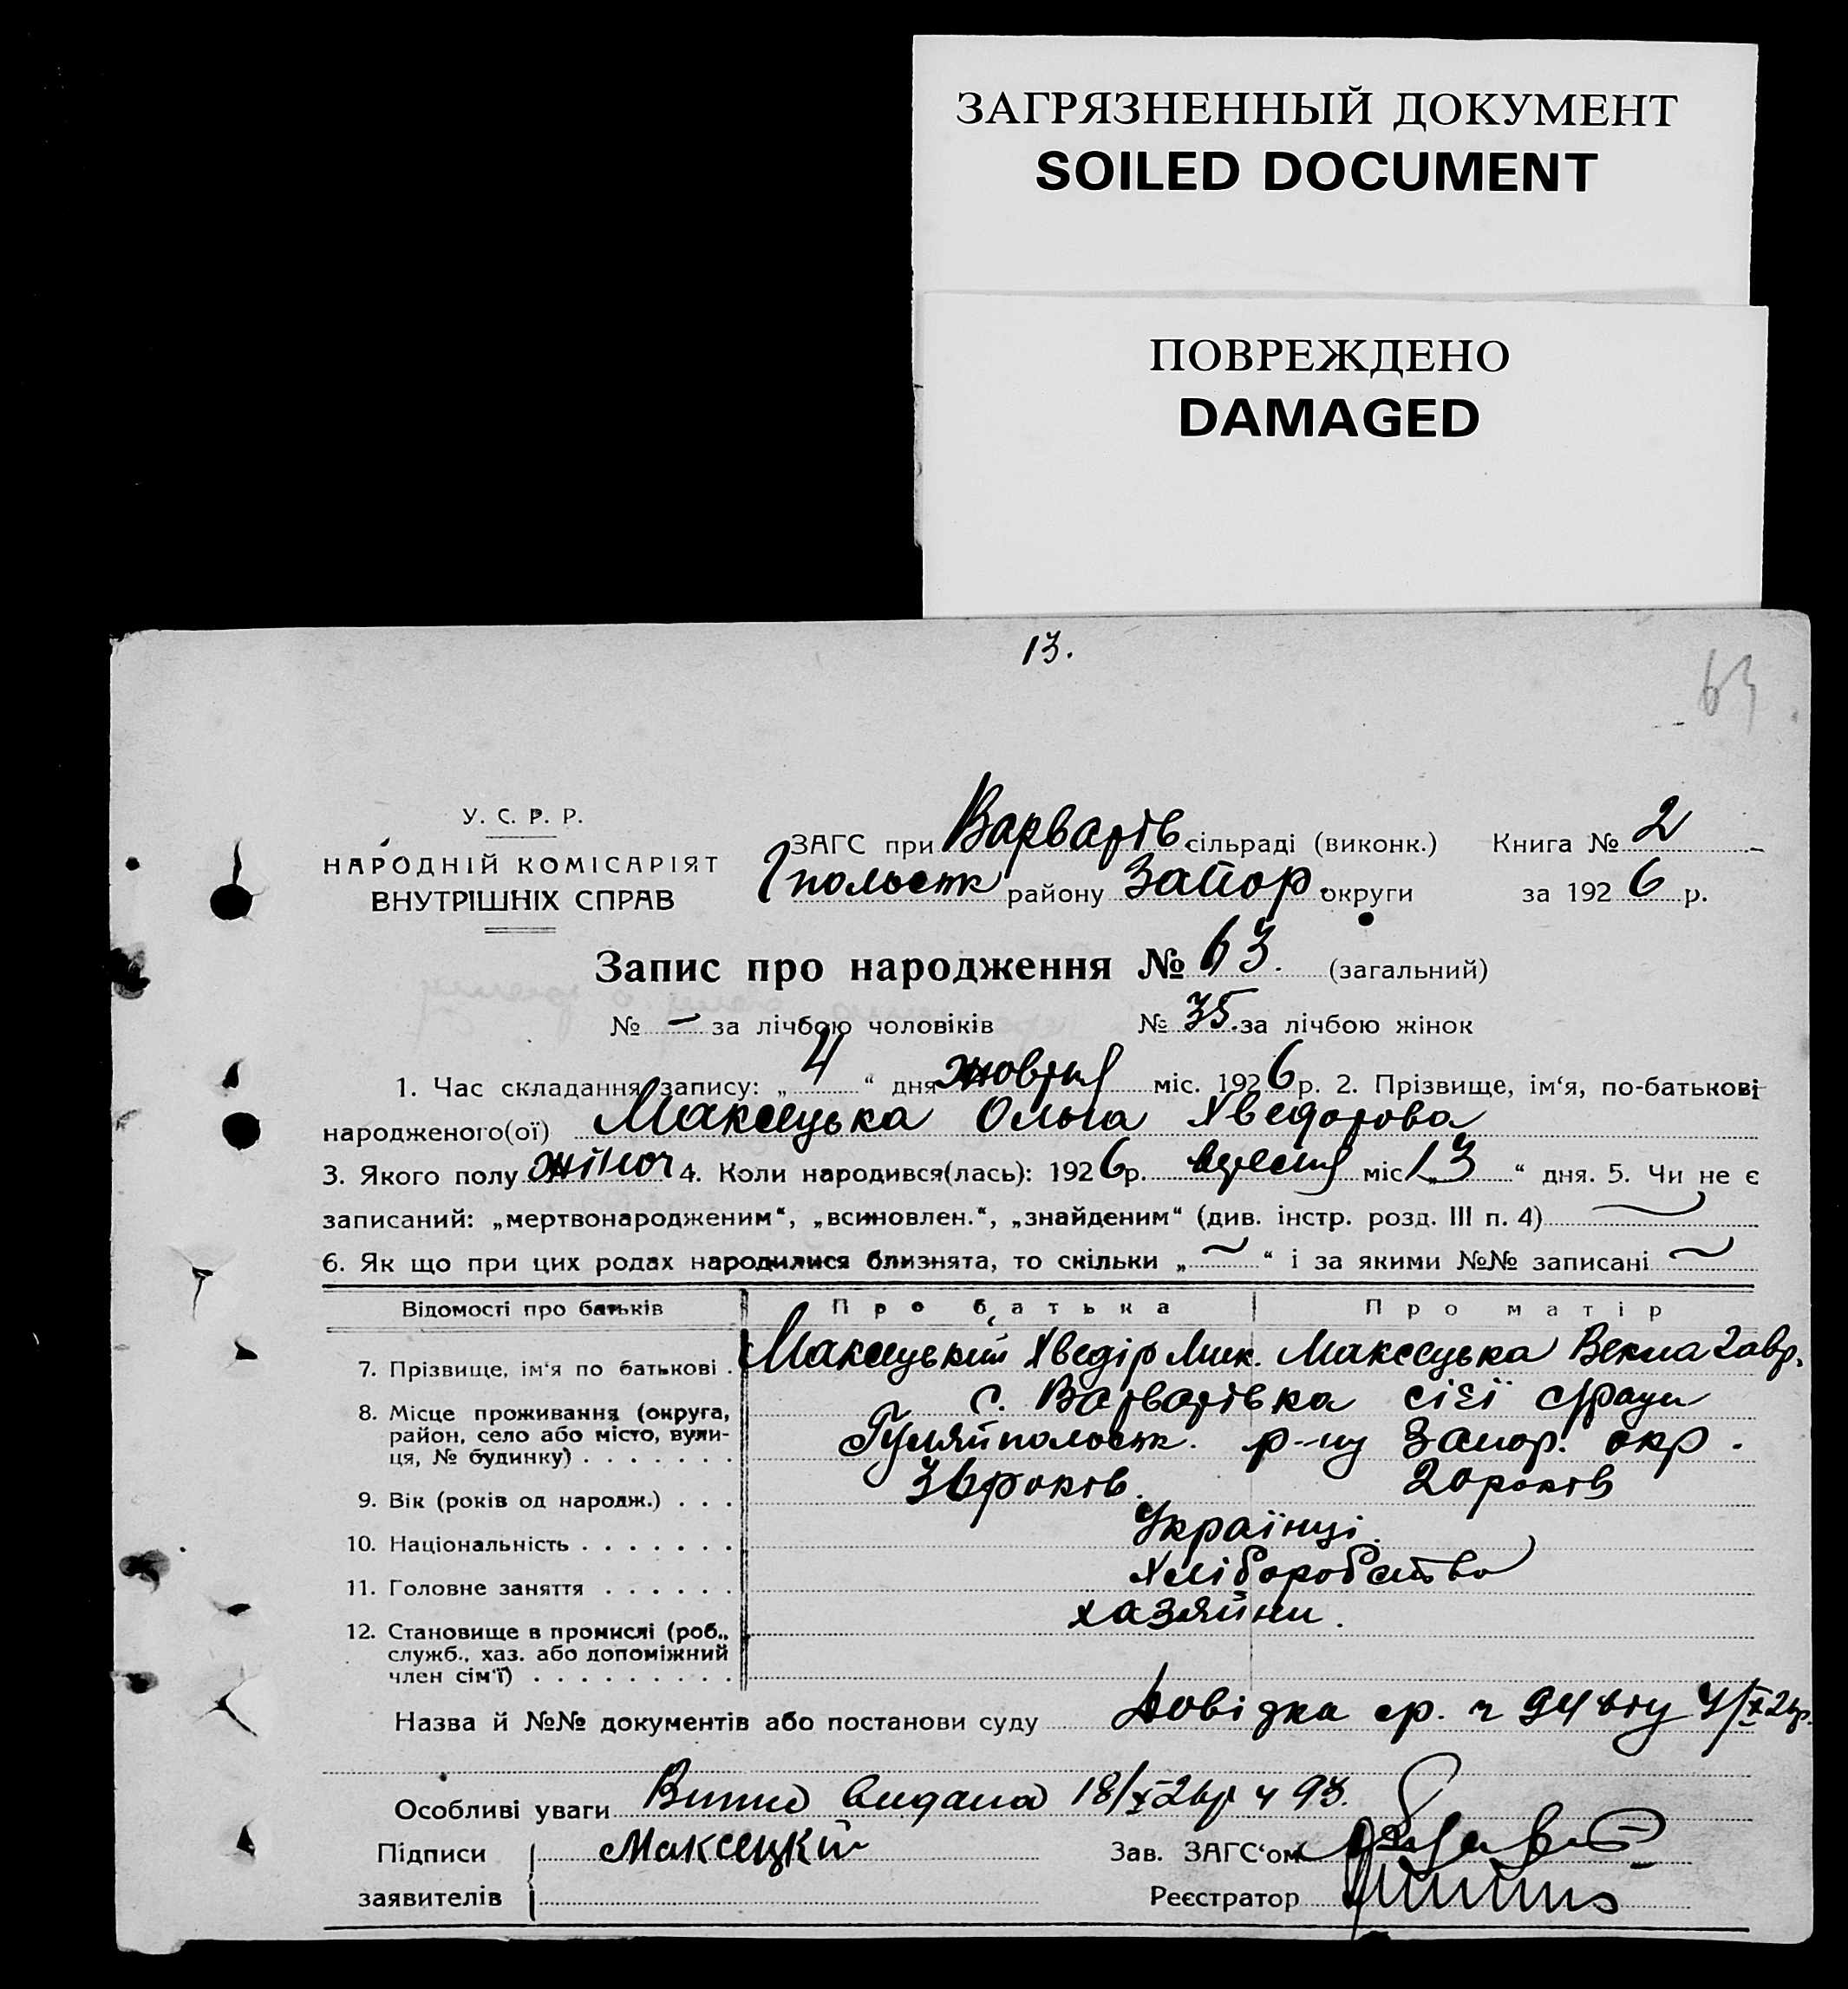 ЗАГРЯЗНЕННЫЙ ДОКУМЕНТ
SOILED DOCUMENT
ПОВРЕЖДЕНО
DAMAGED
13.
63
У. С. Р. Р.
НАРОДНІЙ КОМІСАРІЯТ
ВНУТРІШНІХ СПРАВ
ЗАГС при Варварів сільраді (виконк.) Книга № 2
Гпольськ району Запор. округи за 1926 р.
Запис про народження № 63. (загальний)
№ — за лічбою чоловіків № 35. за лічбою жінок
1. Час складання запису: „ 4 “ дня жовтня міс. 1926 р. 2. Прізвище, ім‘я, по-батькові
народженого(ої) Максецька Ольга Хведорова
3. Якого полу жіноч 4. Коли народився(лась): 1926 р. вересня міс „13“ дня. 5. Чи не є
записаний: „мертвонародженим“, „всиновлен.“, „знайденим“ (див. інстр. розд. III п. 4) ~
6. Як що при цих родах народилися близнята, то скільки „ ~ “ і за якими №№ записані ~
Відомості про батьків Про батька Про матір
7. Прізвище, ім‘я по батькові . Максецький Хведір Мик. Максецька Векла Гавр.
8. Місце проживання (округа, район, село або місто, вули- ця, № будинку) . . . . . . . с. Варварівка сієї сради
Гуляйпольськ. р-ну Запор. окр.
9. Вік (років од народж.) . . . 36 років. 20 років
10. Національність . . . . . . . Українці.
11. Головне заняття . . . . . . Хліборобство
12. Становище в промислі (роб., служб., хаз. або допоміжний член сім‘ї) . . . . . . . . . хазяйни.
Назва й №№ документів або постанови суду Довідка ср. ч 94 4/X 26р.
Особливі уваги видана 18/X 26р ч 93.
Підписи Максецкій Зав. ЗАГС‘ом
заявителів Реєстратор